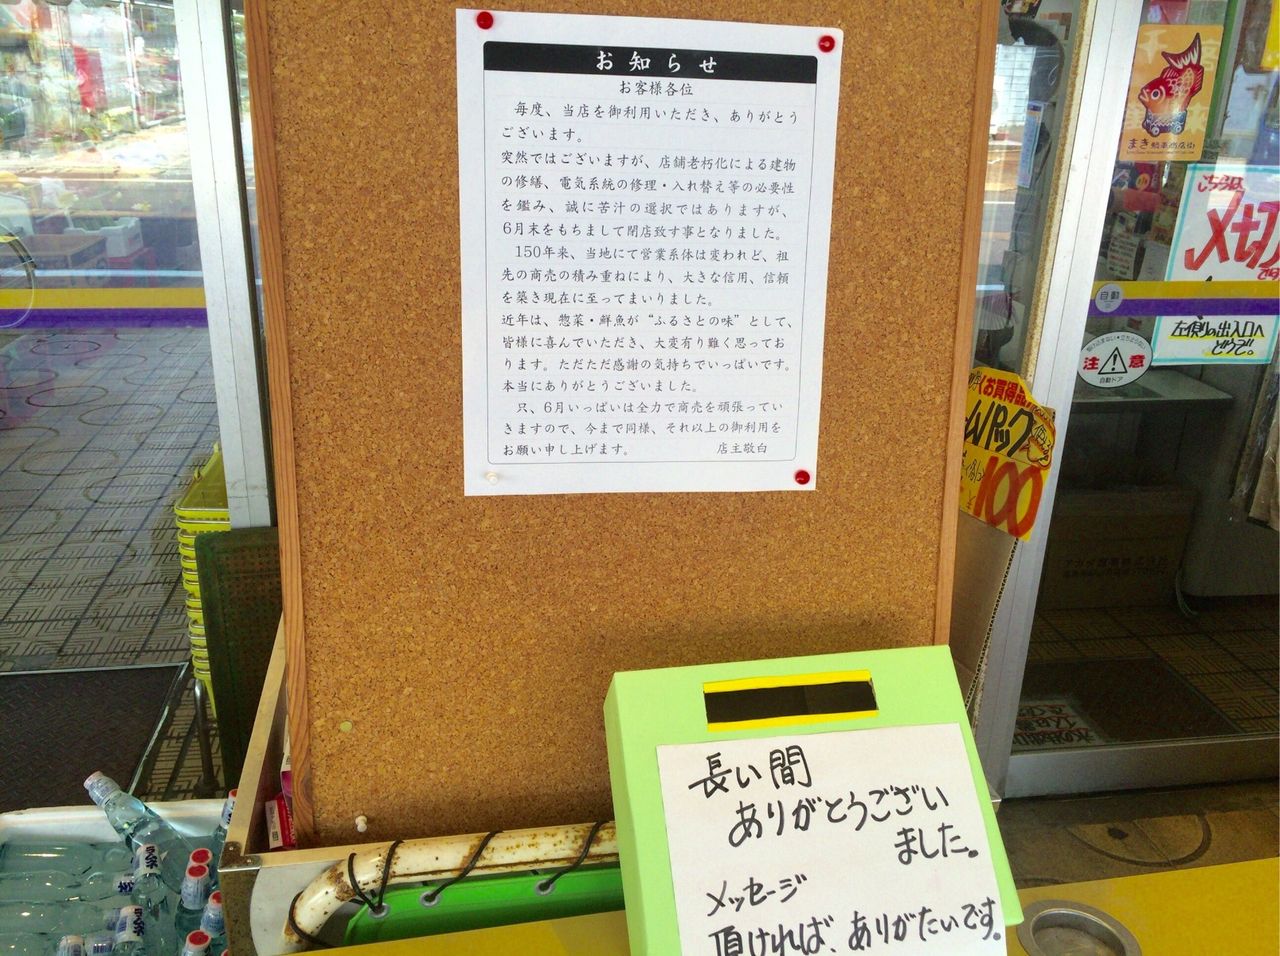 お知らせ
お客様各位
毎度、当店を御利用いただき、ありがとう
ございます。
突然ではございますが、店舗老朽化による建物
の修繕、電気系統の修理・入れ替え等の必要性
を鑑み、誠に苦汁の選択ではありますが、
6月末をもちまして閉店致す事となりました。
150年来、当地にて営業系体は変われど、祖
先の商売の積み重ねにより、大きな信用、信頼
を築き現在に至ってまいりました。
近年は、惣菜・鮮魚が“ふるさとの味”として、
皆様に喜んでいただき、大変有り難く思ってお
ります。ただただ感謝の気持ちでいっぱいです。
本当にありがとうございました。
只、6月いっぱいは全力で商売を頑張ってい
きますので、今まで同様、それ以上の御利用を
お願い申し上げます。 店主敬白
長い間
ありがとうござい
ました。
メッセージ
頂ければ、ありがたいです。
まき
こちらは
メセカ
です
自動
左側の出入口へ
どうぞ。
注意
自動ドア
お買得品
パック
100
ラムネ